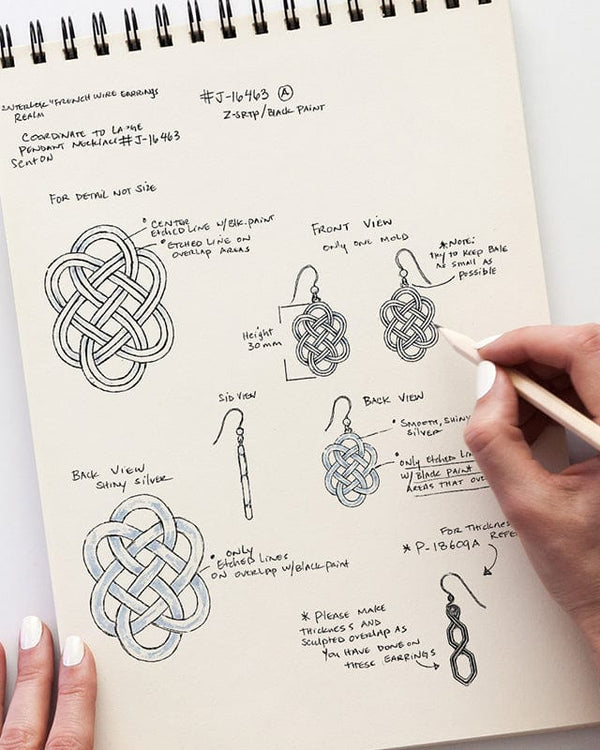 "FRENCH WIRE EARRINGS
REALM
#J-16463 A
Z-SRTP/BLACK PAINT
COORDINATE TO LARGE
PENDANT NECKLACE #J-16463
SENT ON
FOR DETAIL NOT SIZE
CENTER
ETCHED LINE W/BLK.PAINT
ETCHED LINE ON
OVERLAP AREAS
FRONT VIEW
ONLY ONE MOLD
*NOTE:
TRY TO KEEP BALE
AS SMALL AS
POSSIBLE
Height
30mm
SID VIEW
BACK VIEW
SMOOTH, SHINY
SILVER
ONLY ETCHED
W/BLACK PAINT
AREAS THAT
BACK VIEW
SHINY SILVER
ONLY
ETCHED LINES
ON OVERLAP W/BLACK PAINT
FOR THICKNESS
REFE
* P-18609A
* PLEASE MAKE
THICKNESS AND
SCULPTED OVERLAP AS
YOU HAVE DONE ON
THESE EARRINGS